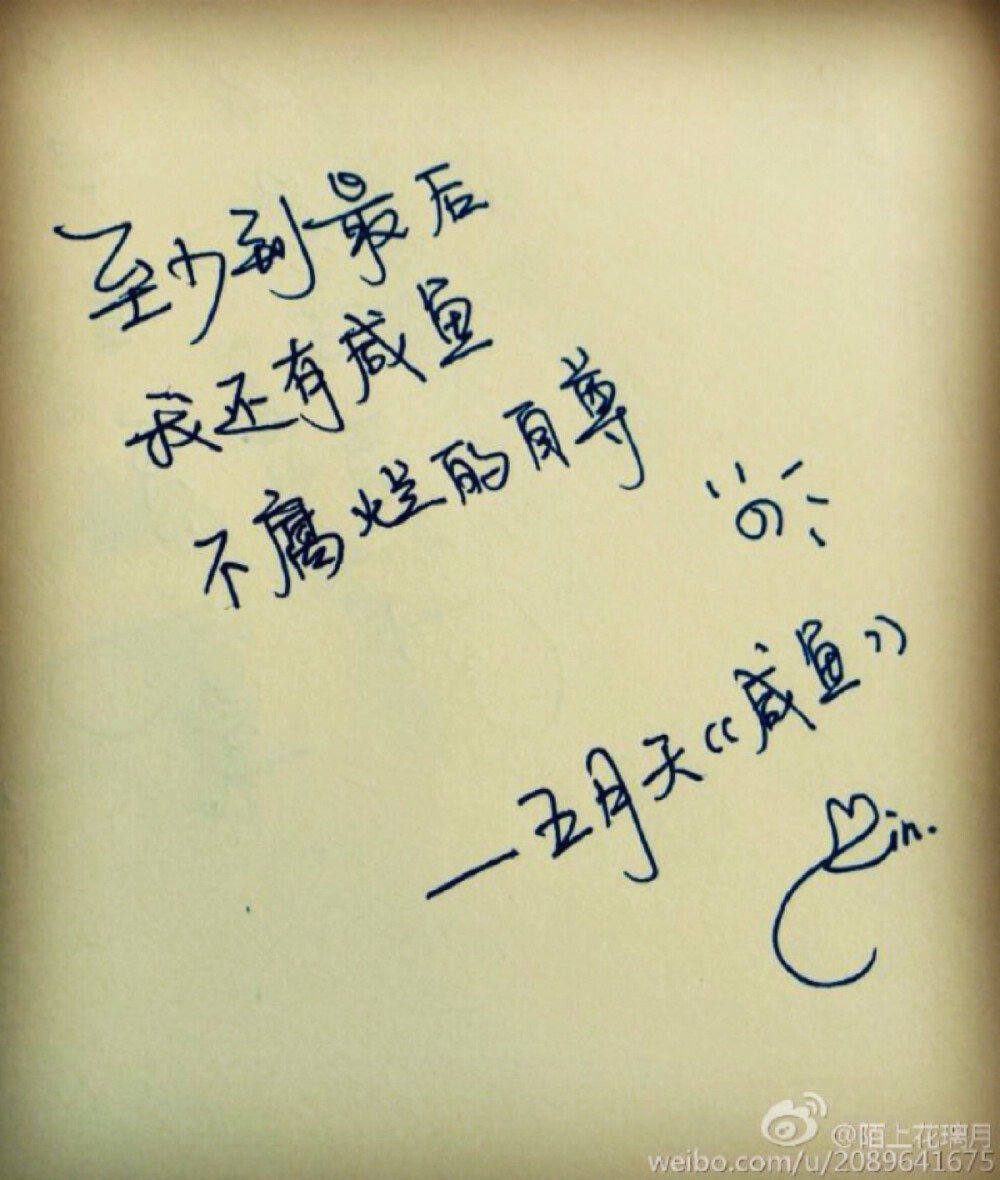 至少到最后
我还有咸鱼
不腐烂的自尊
—五月天《咸鱼》
in.
@陌上花璃月
weibo.com/u/2089641675